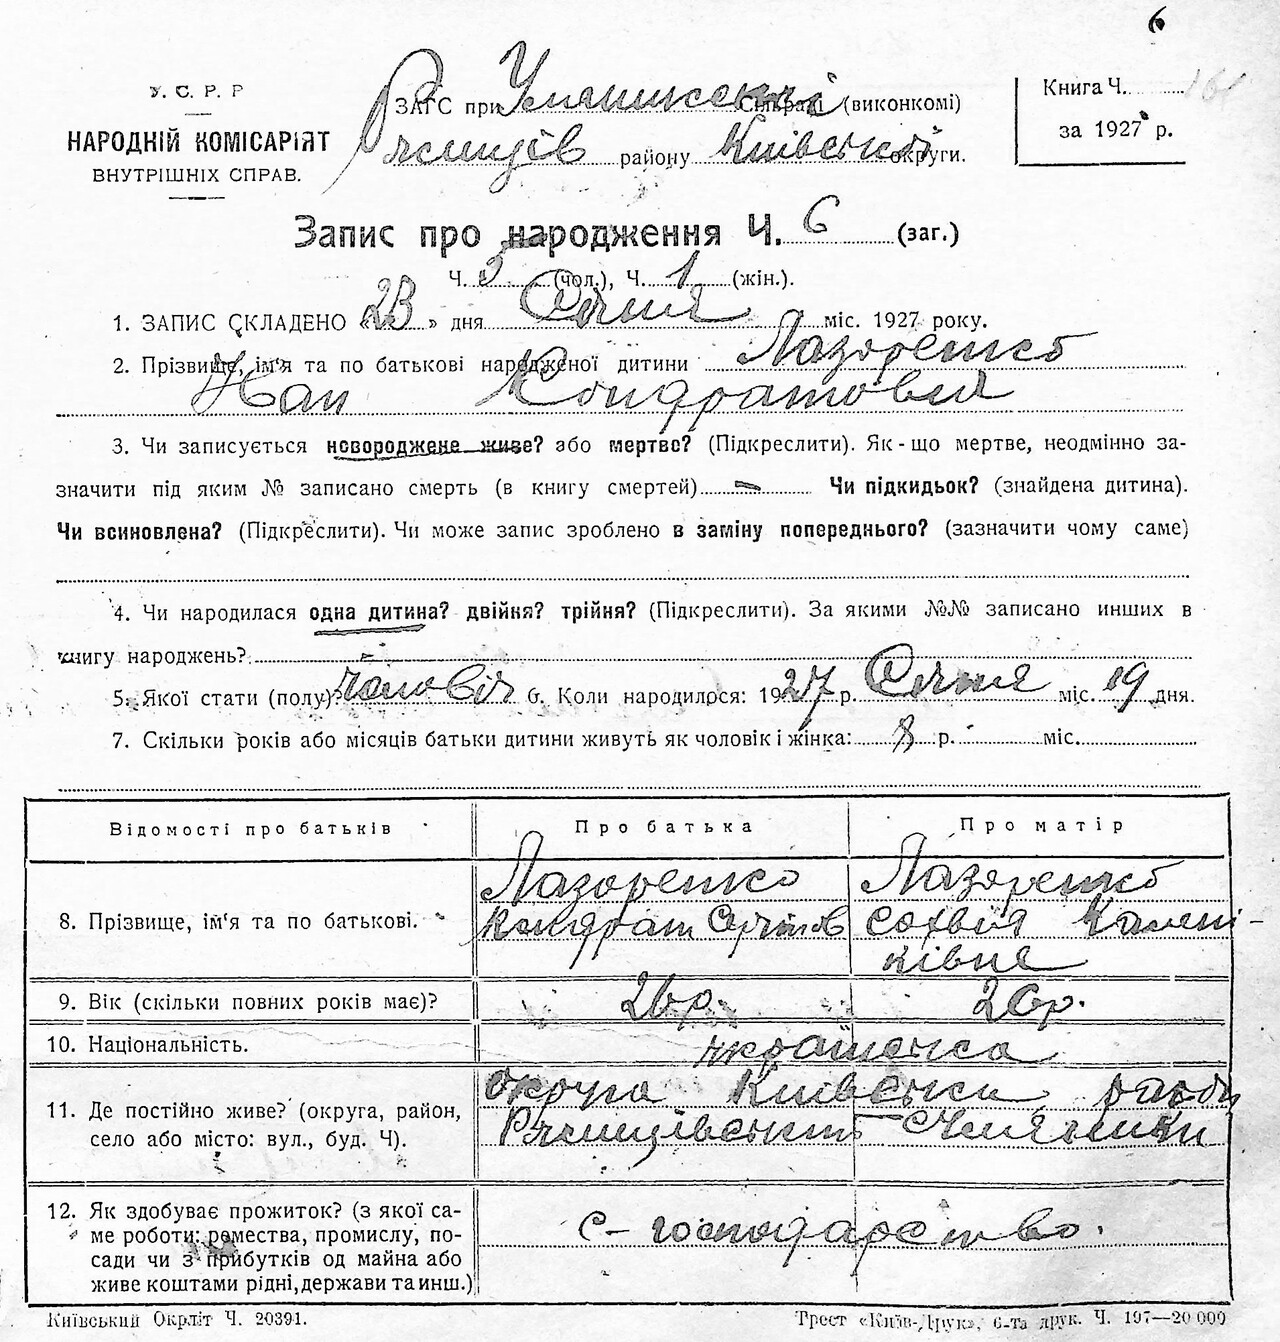 6
У. С. Р. Р
НАРОДНІЙ КОМІСАРІЯТ
ВНУТРІШНІХ СПРАВ.
ЗАГС при Сільраді (виконкомі)
району Київської округи.
Книга Ч. 161
за 1927 р.
Запис про народження Ч. 6 (заг.)
Ч. 5 (чол.), Ч. 1 (жін.).
1. ЗАПИС СКЛАДЕНО «23» дня Січня міс. 1927 року.
2. Прізвище, ім'я та по батькові народженої дитини Лазоренко
Іван Кондратовия
3. Чи записується новороджене живе? або мертве? (Підкреслити). Як-що мертве, неодмінно за-
значити під яким № записано смерть (в книгу смертей) — Чи підкидьок? (знайдена дитина).
Чи всиновлена? (Підкреслити). Чи може запис зроблено в заміну попереднього? (зазначити чому саме)
4. Чи народилася одна дитина? двійня? трійня? (Підкреслити). За якими №№ записано инших в
книгу народжень?
5. Якої стати (полу)? чоловіч 6. Коли народилося: 1927 р. Січня міс. 19 дня.
7. Скільки років або місяців батьки дитини живуть як чоловік і жінка: 8 р. міс.
Відомості про батьків
Про батька
Про матір
8. Прізвище, ім'я та по батькові.
Лазоренко
Кондрат
Лазоренко
Сохвія Калені-
ківна
9. Вік (скільки повних років має)?
26 р.
26 р.
10. Національність.
українська
11. Де постійно живе? (округа, район,
село або місто: вул., буд. Ч).
округа Київська район
Ржищівський
12. Як здобуває прожиток? (з якої са-
ме роботи: ремества, промислу, по-
сади чи з прибутків од майна або
живе коштами рідні, держави та инш.)
с-господарство.
Київський Окрліт Ч. 20391.
Трест «Київ-Друк», 6-та друк. Ч. 197—20 000